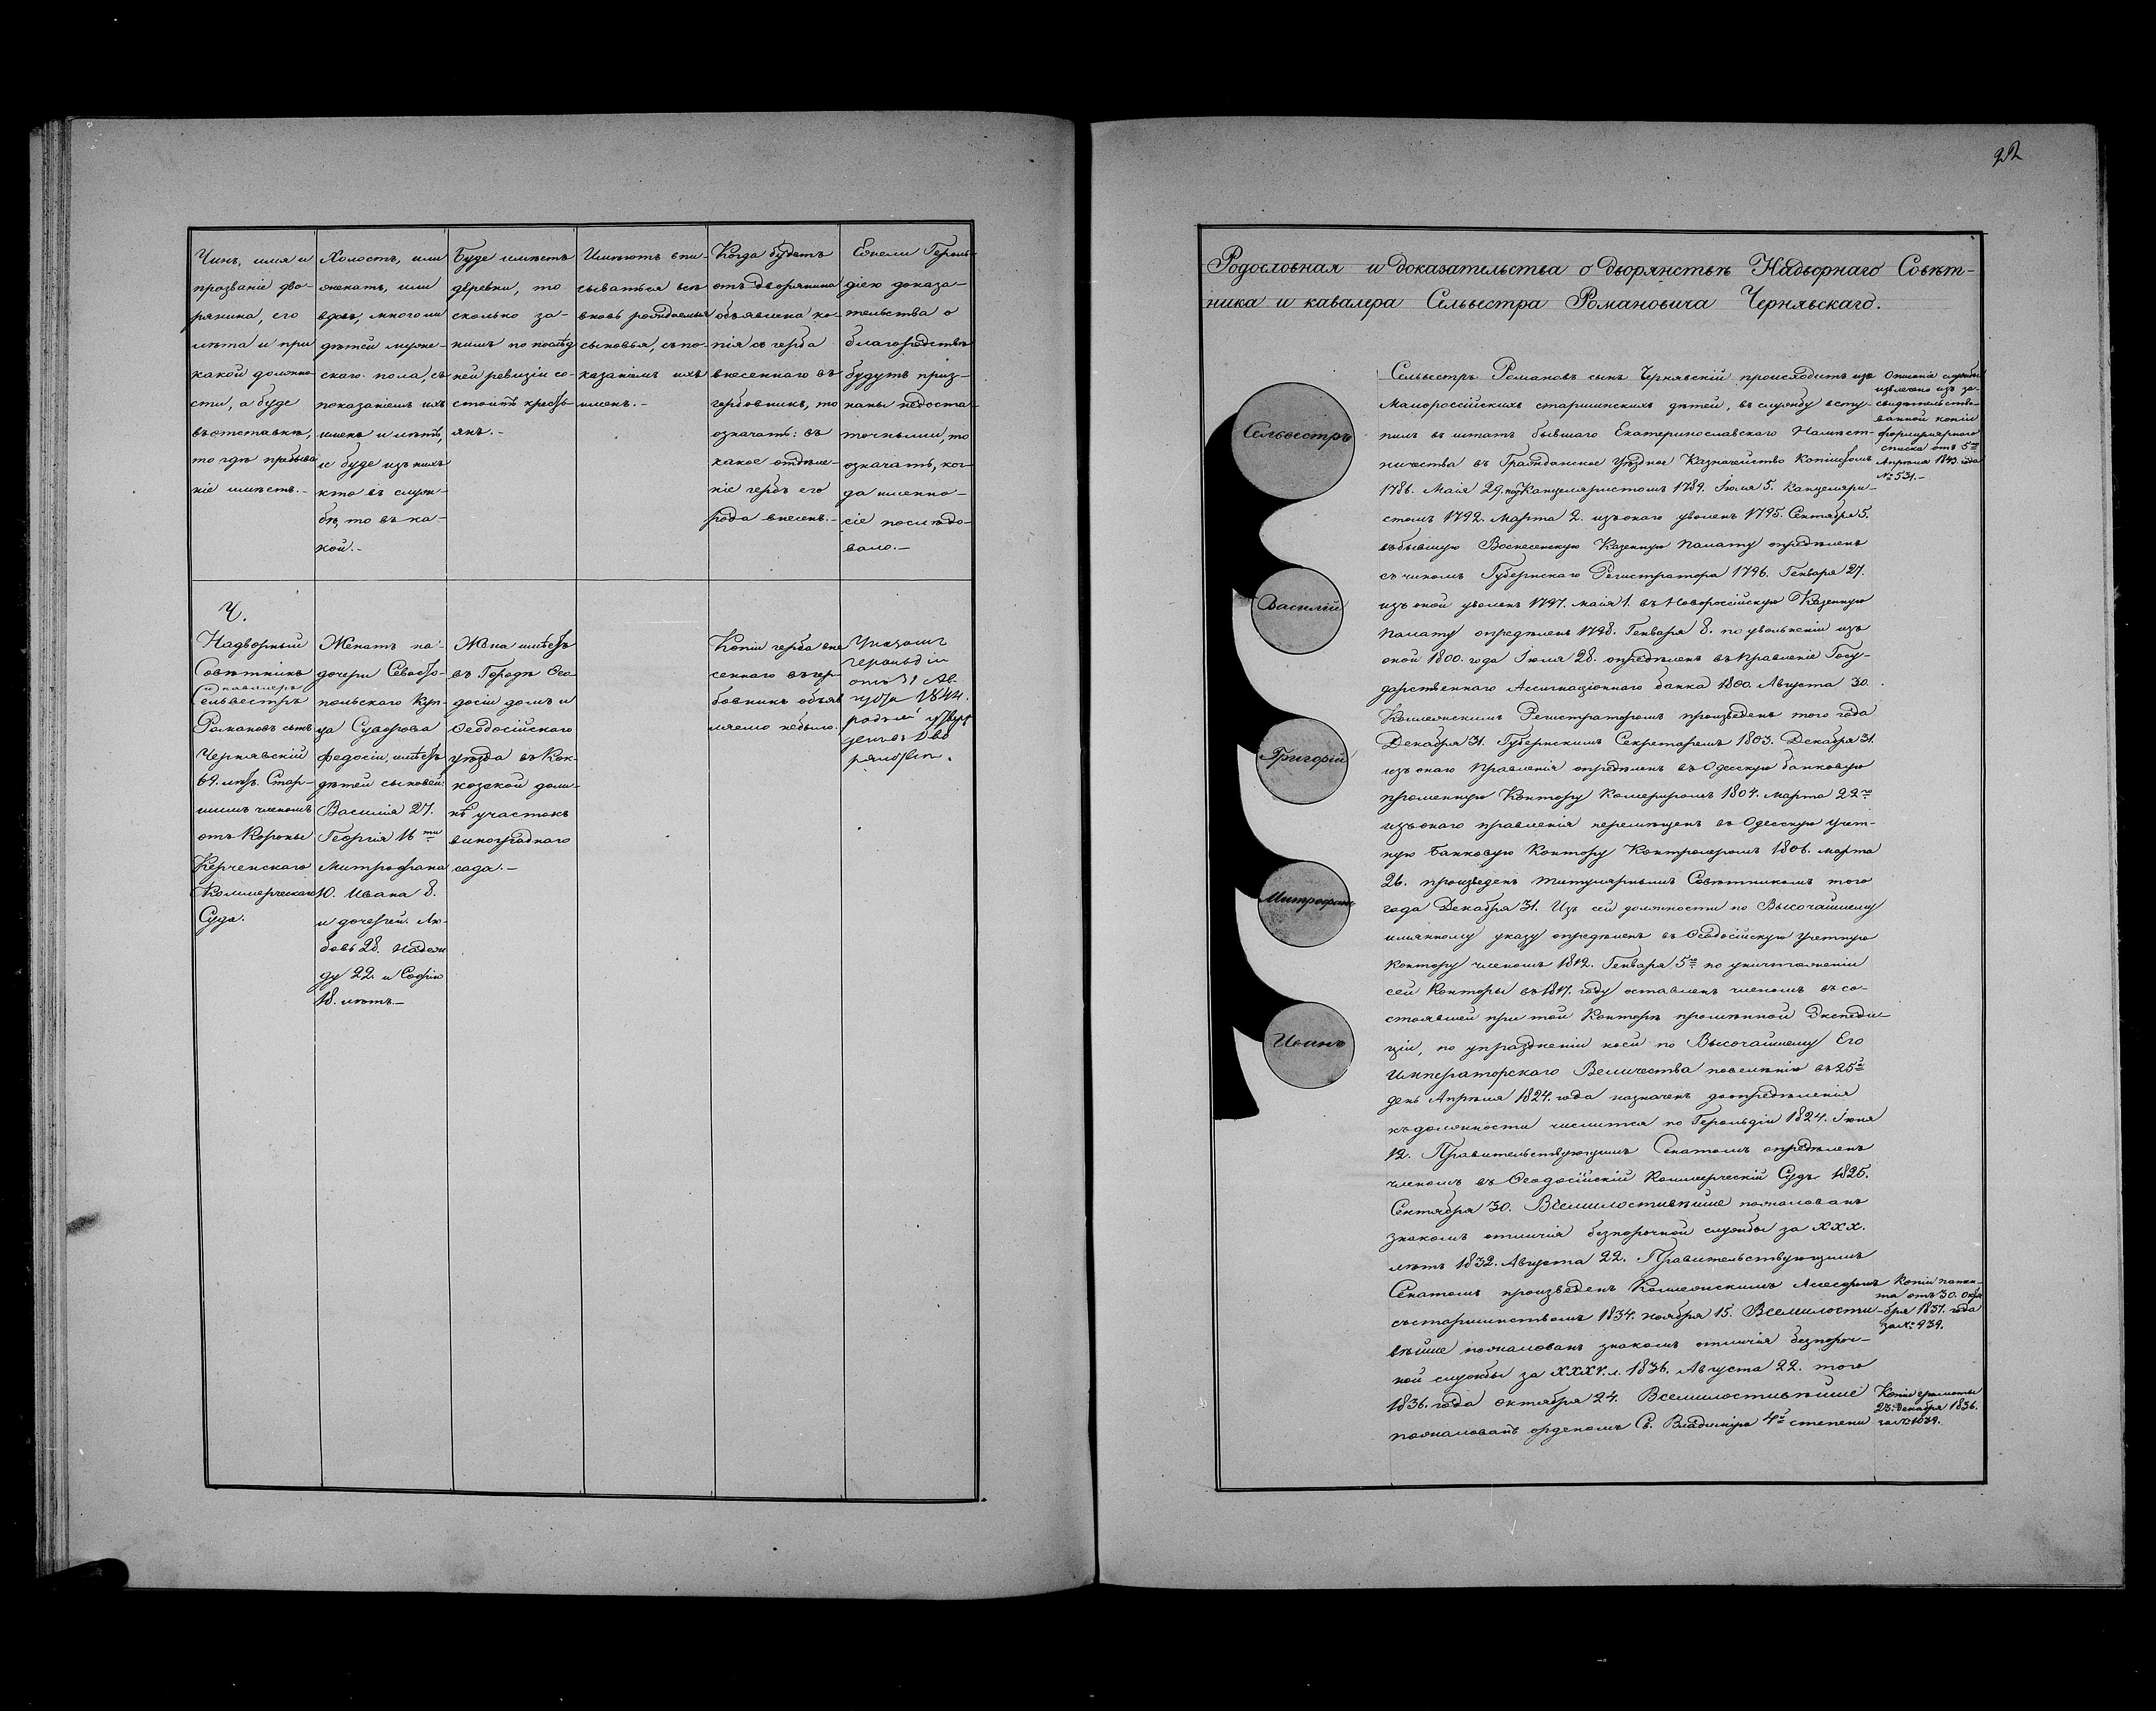 Чинъ, имя и
прозваніе дво-
рянина, его
лѣта и при
какой должно-
сти, а буде
въ отставкѣ,
то гдѣ пребыва
ніе имѣетъ.-
Холостъ, или
женатъ, или
вдовъ, много ли
дѣтей муже-
скаго пола, съ
показаніемъ ихъ
именъ и лѣтъ,
и буде изъ нихъ
кто въ служ-
бѣ, то въ ка-
кой.-
Буде имѣетъ
деревни, то
сколько за-
нимъ по послѣд
ней ревизіи со-
стоитъ кресть-
янъ.-
Имѣютъ впи-
сываться всѣ
вновь рождаемыя
сыновья, съ по-
казаніемъ ихъ
именъ.-
Когда будетъ
отъ дворянина
объявлена ко-
пія съ герба
внесеннаго въ
гербовникъ, то
означать: въ
какое отдѣле-
ніе гербъ его
рода внесенъ.-
Ежели Героль-
діею доказа-
тельства о
благородствѣ
будутъ приз-
наны недоста-
точными, то
означать, ког-
да именно-
сіе послѣдо-
вало.-
Ч.
Надворный
Совѣтникъ
и кавалеръ
Сельвестръ
Романовъ сынъ
Чернявскій
64. лѣтъ. Стар-
шимъ членомъ
отъ Короны
Керченскаго
Коммерческаго
Суда.
Женатъ на-
дочери Севасто-
польскаго Куп-
ца Суворова
Федосіи, имѣетъ
дѣтей сыновей:
Василія 27.
Георгія 16 ти
Митрофана
10. Ивана 8.
и дочерей. Лю-
бовь 28. Надеж
ду 22. и Софію
18. лѣтъ.-
Жена имѣетъ
въ Городѣ Ѳео-
досіи домъ и
Ѳеодосійскаго
уѣзда въ Кок-
козской доли-
нѣ участокъ
винограднаго
сада.-
Копіи герба вне
сеннаго въ гер-
бовникъ объяв
ляемо небыло.
Указомъ
герольдіи
отъ 31 Ав-
густа 1844.
родъ сей утверж
денъ въ дво
рянствѣ.
22
Родословная и доказательства о дворянствѣ Надворнаго Совѣт-
ника и кавалера Сельвестра Романовича Чернявскаго.
Сельвестръ
Василій
Григорій
Митрофанъ
Иванъ
Сельвестръ Романовъ сынъ Чернявскій происходитъ изъ
Малороссійскихъ старшинскихъ дѣтей, въ службу всту-
пилъ въ штатъ бывшаго Екатеринославскаго Намѣст-
ничества въ Гражданское уѣздное Казначейство Копіистомъ
1786. Маія 29. подКанцеляристомъ 1789. Іюля 5. Канцеляри-
стомъ 1792. Марта 2. изъ онаго уволенъ 1795. Сентября 5.
въ бывшую Вознесенскую Казенную Палату опредѣленъ
съ чиномъ Губернскаго Регистратора 1796. Генваря 27.
изъ оной уволенъ 1797. маія 1. въ Новороссійскую Казенную
Палату опредѣленъ 1798. Генваря 8. по увольненіи изъ
оной 1800. года Іюля 28. опредѣленъ въ Правленіе Госу-
дарственнаго Ассигнаціоннаго банка 1800. Августа 30.
Коллежскимъ Регистраторомъ произведенъ того года
Декабря 31. Губернскимъ Секретаремъ 1803. Декабря 31.
изъ онаго Правленія опредѣленъ въ Одесскую банковую
промѣнную Контору Камериромъ 1804. марта 22 го
изъ онаго правленія перемѣщенъ въ Одесскую учет-
ную Банковую Контору Контролеромъ 1806. марта
26. произведенъ титулярнымъ Совѣтникомъ того
года Декабря 31. Изъ сей должности по Высочайшему
имянному указу опредѣленъ въ Ѳеодосійскую учетную
контору членомъ 1812. Генваря 5 го по уничтоженіи
сей Конторы въ 1817. году оставленъ членомъ въ со-
стоявшей при той Конторѣ промѣнной Экспеди-
ціи, по упраздненіи коей по Высочайшему Его
Императорскаго Величества повелѣнію въ 25 й
день Апрѣля 1824. года назначенъ до опредѣленія
къ должности числится по Герольдіи 1824. Іюня
12. Правительствующимъ Сенатомъ опредѣленъ
членомъ въ Ѳеодосійскій Коммерческій Судъ 1825.
Сентября 30. Всемилостивѣйше пожалованъ
знакомъ отличія безпорочной службы за ХХХ.
лѣтъ 1832. Августа 22. Правительствующимъ
Сенатомъ произведенъ Коллежскимъ Ассесоромъ
съ старшинствомъ 1834. ноября 15. Всемилости-
вѣйше пожалованъ знакомъ отличія безпороч-
ной службы за ХХХV. л. 1836. Августа 22. того
1836. года октября 24. Всемилостивѣйше
пожалованъ орденомъ Св. Владиміра 4 й степени
Описаніе службы
извлечено изъ за-
свидѣтельство-
ванной копіи
формулярнаго
списка отъ 5 го
Апрѣля 1843. года
№ 531.-
Копія патен-
та отъ 30. Октя
бря 1837. года
за № 939.
Копія грамоты
23. Декабря 1836.
за № 1039.